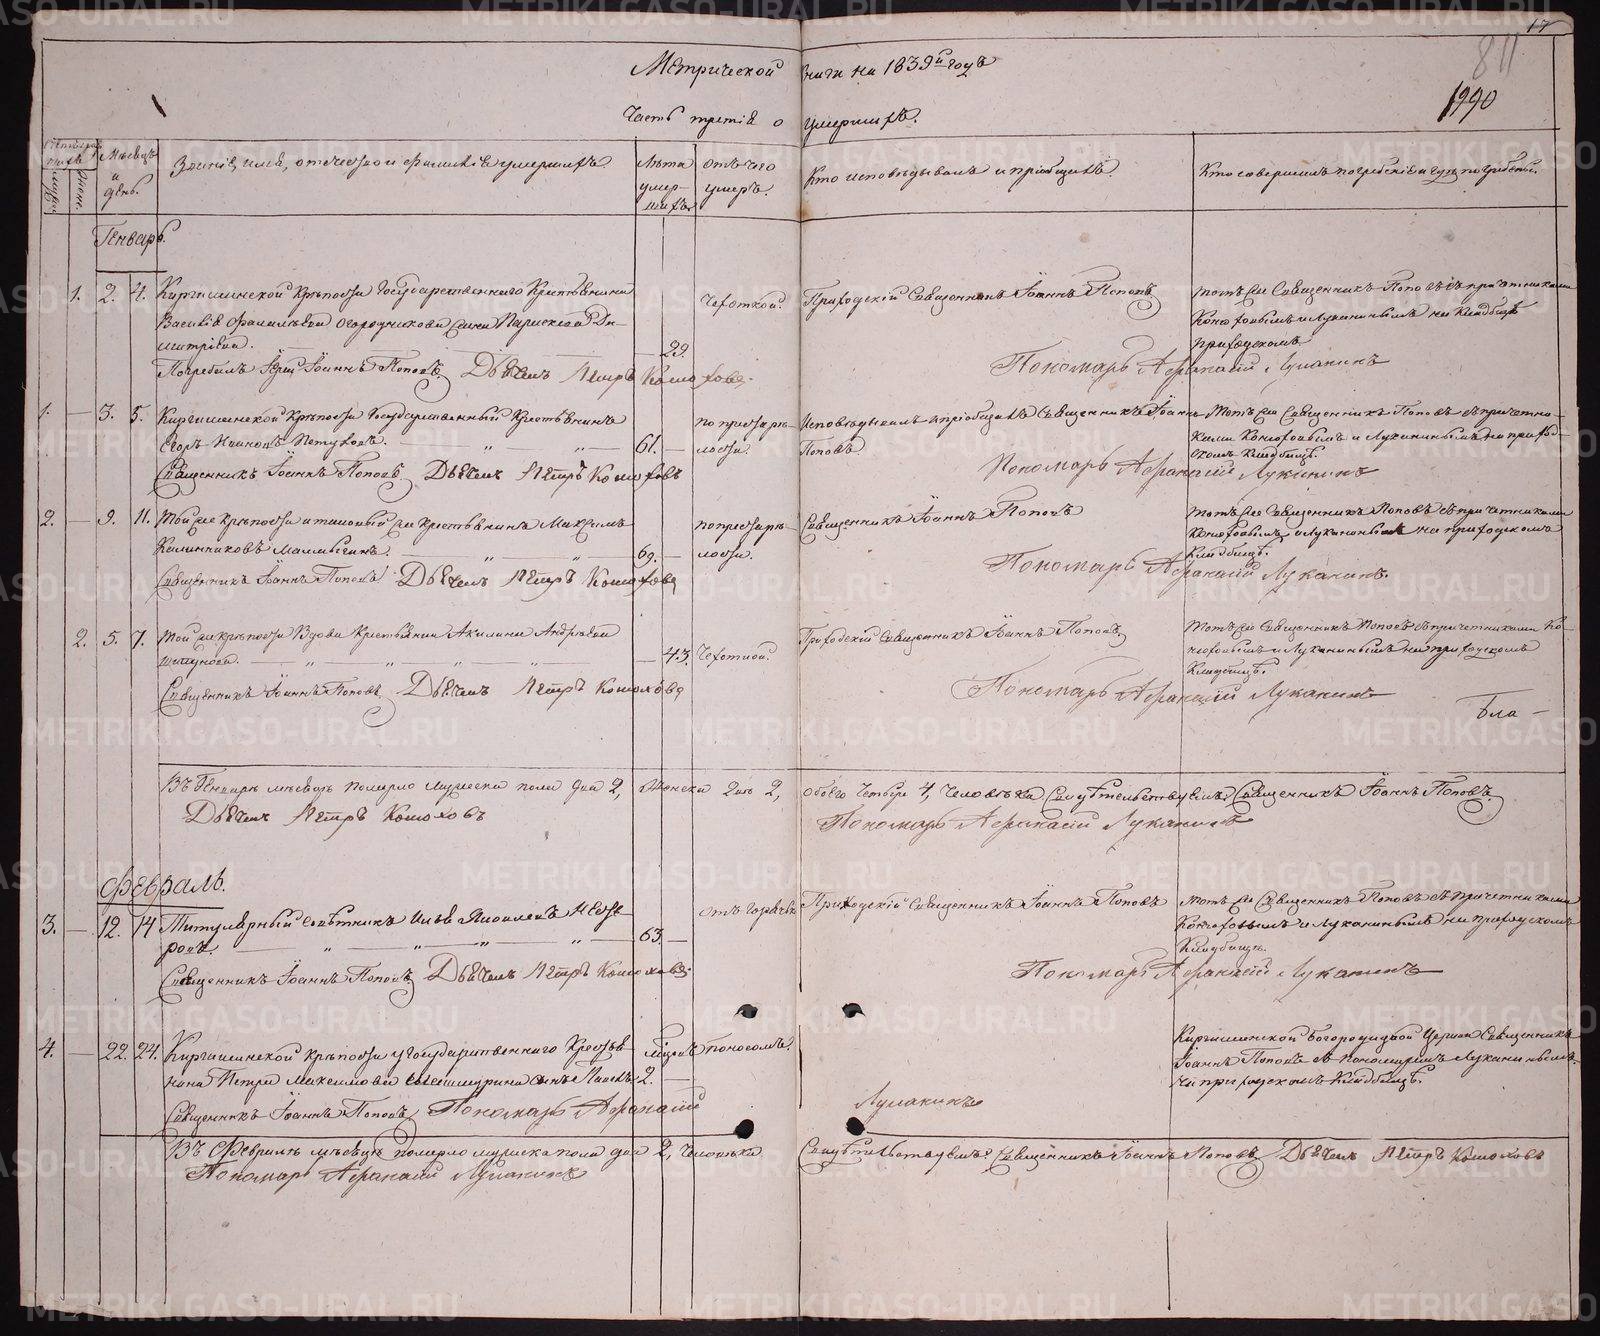 17
811
1990
Метрической книги на 1839й годъ
Часть третія о умершихъ.
Мѣсяцъ и день.
Званіе, имя, отечество и фамилія умершихъ.
Лѣта умер-шихъ.
Отъ чего умеръ.
Кто исповѣдывалъ и пріобщалъ.
Кто совершалъ погребеніе и гдѣ погребены.
Генварь.
1. 2. 4. Киргишанской крѣпости Государственнаго Крестьянина
Василія Огородникова Параскева Ди-
митріева. 29.
Чехоткой.
Приходскій Священникъ Іоаннъ Поповъ
тотъ же Священникъ Поповъ съ причетниками
и Луканинымъ на Кладбищѣ
приходскомъ
Погребалъ Іерей Іоаннъ Поповъ. Дьячекъ Петръ
Пономарь Афанасій Луканинъ
1. — 3. 5. Киргишанской Крѣпости Государственный Крестьянинъ
Егоръ Ивановъ Петуховъ. 61.
по преста-рѣлости.
Исповѣдывалъ и пріобщалъ Священникъ Іоаннъ
Поповъ
Тотъ же Священникъ Поповъ съ причетни-
ками и Луканинымъ на приход-
скомъ Кладбищѣ
Священникъ Іоаннъ Поповъ Дьячекъ Петръ
Пономарь Афанасій Луканинъ
2. — 9. 11. Той же Крѣпости и таковый же крестьянинъ Максимъ
69.
по преста-рѣлости.
Священникъ Іоаннъ Поповъ
тотъ же Священникъ Поповъ съ причетниками
и Луканинымъ на приходскомъ
Кладбищѣ.
Священникъ Іоаннъ Поповъ Дьячекъ Петръ
Пономарь Афанасій Луканинъ.
2. 5. 7. Той же крѣпости Вдова Крестьянка Акилина Андреева
43. Чехоткой.
Приходскій Священникъ Іоаннъ Поповъ
Тотъ же Священникъ Поповъ съ причетниками
и Луканинымъ на приходскомъ
Кладбищѣ.
Священникъ Іоаннъ Поповъ Дьячекъ Петръ
Пономарь Афанасій Луканинъ
Бла —
Въ Генварѣ мѣсяцѣ померло мужеска пола два 2, Женска два 2, обоего Четыре 4, человѣка Священникъ Іоаннъ Поповъ
Дьячекъ Петръ
Пономарь Афанасій Луканинъ
Февраль.
3. — 12. 14 Титулярный Совѣтникъ Илья
63.
отъ горячки
Приходскій Священникъ Іоаннъ Поповъ
Тотъ же Священникъ Поповъ съ Причетниками
и Луканинымъ на приходскомъ
Кладбищѣ.
Священникъ Іоаннъ Поповъ Дьячекъ Петръ
Пономарь Афанасій Луканинъ
4. — 22. 24. Киргишанской крѣпости у Государственнаго Крестья-
нина Петра Максимова сынъ Павелъ 2.
поносомъ.
Киргишанской Богородицкой Церкви Священникъ
Іоаннъ Поповъ съ пономаремъ Луканинымъ
на приходскомъ Кладбищѣ.
Священникъ Іоаннъ Поповъ Пономарь Афанасій
Луканинъ
Въ Февралѣ мѣсяцѣ померло мужска пола два 2, человѣка
Священникъ Іоаннъ Поповъ Дьячекъ Петръ
Пономарь Афанасій Луканинъ
METRIKI.GASO-URAL.RU